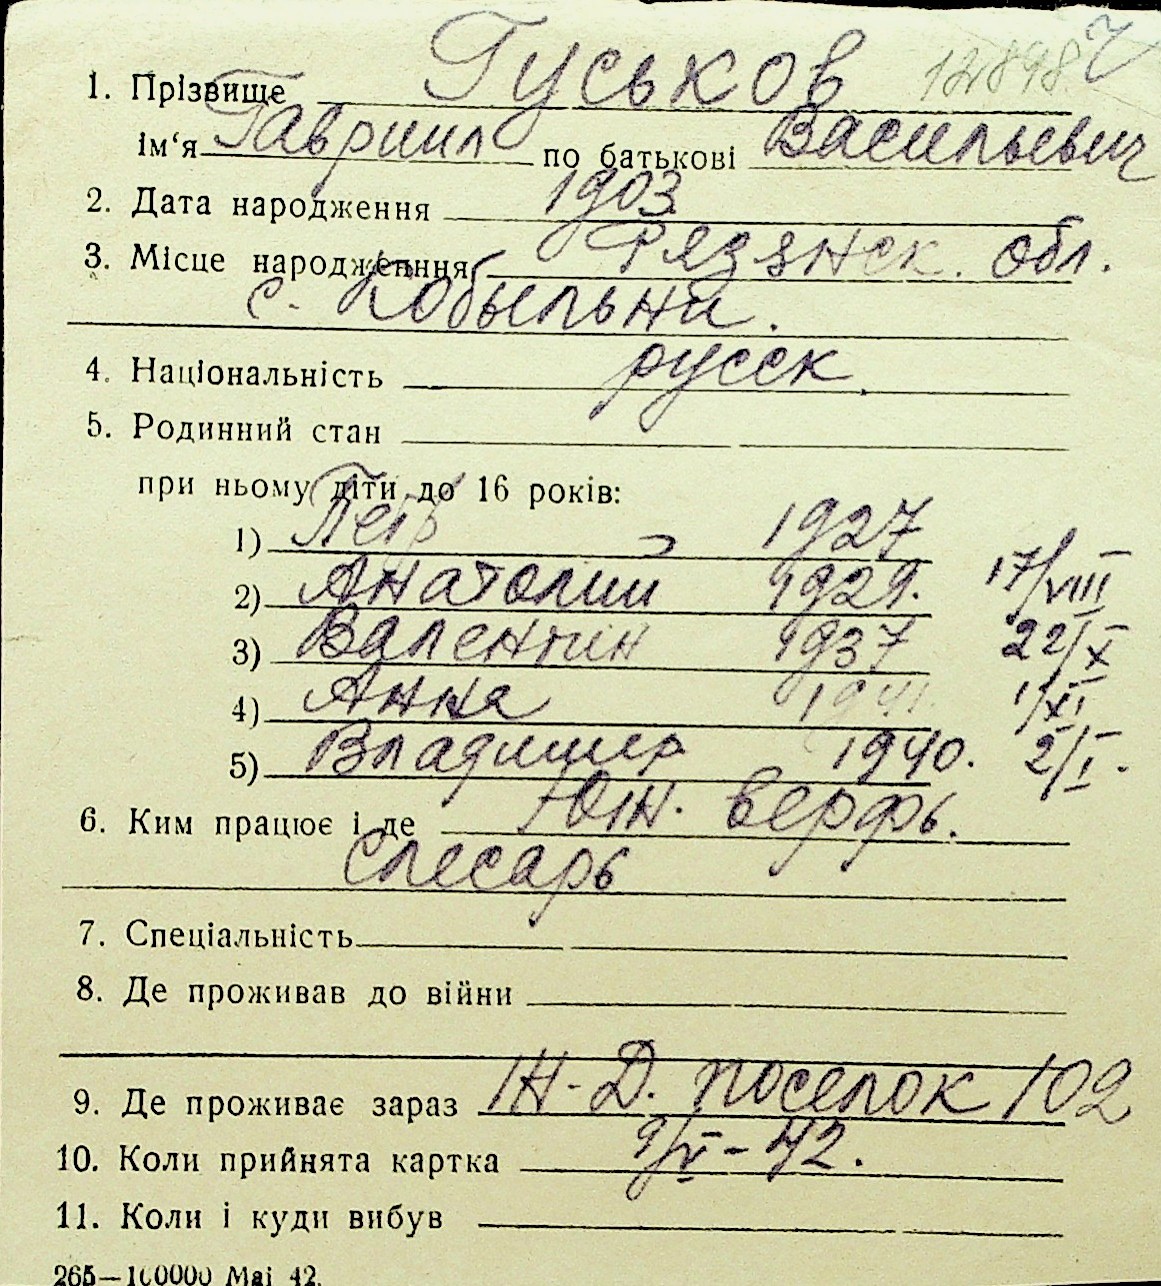 12898
1. Прізвище Гуськов
ім'я Гавриил по батькові Васильевич
2. Дата народження 1903
3. Місце народженння Рязанск. обл.
с. Кобыльни.
4. Національність русск
5. Родинний стан
при ньому діти до 16 років:
1) Петр 1927
2) Анатолий 1929. 17/VIII
3) Валентин 1937 22/X
4) Анна 1941. 1/XI
5) Владимир 1940. 2/I.
6. Ким працює і де Юж. верфь.
Слесарь
7. Спеціальність
8. Де проживав до війни
9. Де проживає зараз Ж-Д. поселок 102
10. Коли прийнята картка 9/V-42.
11. Коли і куди вибув
265—100000 Mai 42.